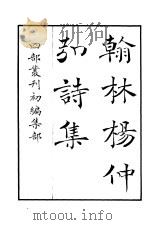 翰林楊仲
弘詩集
四部叢刊初編集部
mtoou.info